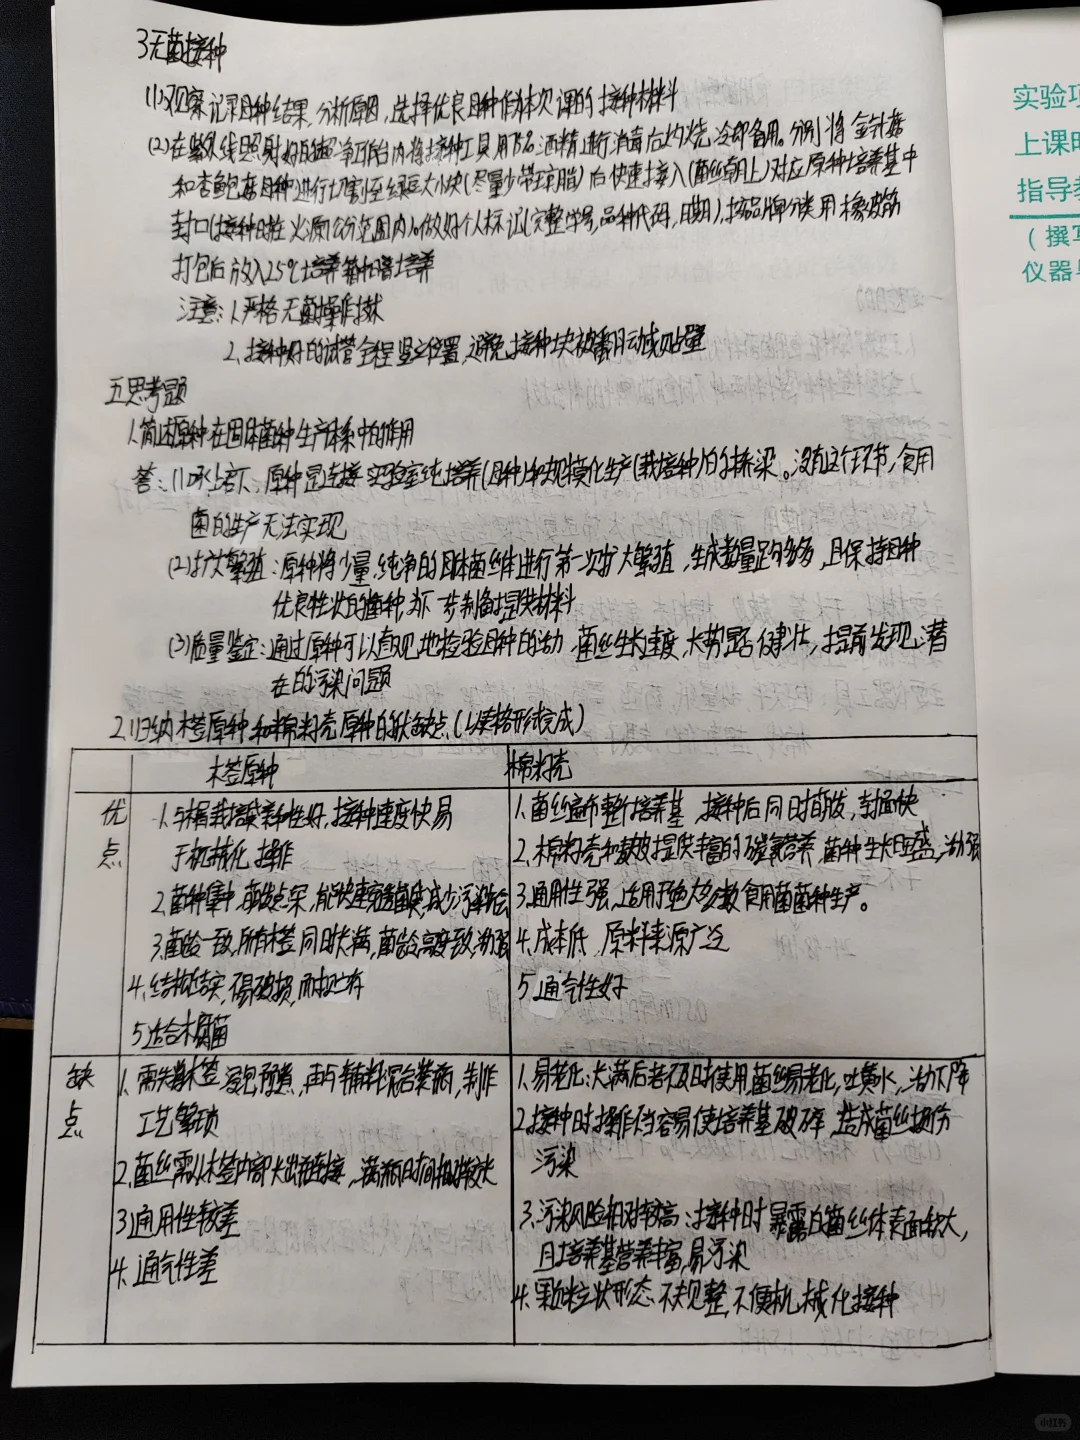 3无菌接种
(1)观察记录母种结果,分析原因,选择优良母种作为本次课的接种材料
(2)在紫外线照射好的超净工作台内将接种工具用75%酒精进行消毒后灼烧,冷却备用。分别将金针菇
和杏鲍菇母种进行切割至绿豆大小块(尽量少带琼脂)后快速接入(菌丝朝上)对应原种培养基中
封口(接种时在火源 范围内)。做好个人标记(完整学号,品种代码,日期),按品牌分类用橡皮筋
打包后放入25℃培养箱内暗培养
注意:1.严格无菌操作技术
2.接种好的试管全程竖立位置,避免接种块被翻动或贴壁
五思考题
1.简述原种在固体菌种生产体系中的作用
答:(1)承上启下,原种是连接实验室纯培养(母种)和规模化生产(栽培种)的桥梁。没有这个环节,食用
菌的生产无法实现
(2)扩大繁殖:原种将少量,纯净的母体菌丝体进行第一次扩大繁殖,生成数量足够多,且保持母种
优良性状的菌种,为下一步制备提供材料
(3)质量鉴定:通过原种可以直观地检验母种的活力,菌丝生长速度,长势是否健壮,提前发现潜
在的污染问题
2.归纳木签原种和棉籽壳原种的优缺点(以表格形式完成)
木签原种 棉籽壳
优点
1.与棉栽培袋亲和性好,接种速度快易
于机械化操作
2.菌种集中,萌发点深,能快速 减少污染机会
3.菌龄一致,所有木签同时长满,菌龄高度一致,活力强
4.结构结实,不易破损,耐贮存
5适合木腐菌
1.菌丝遍布整个培养基,接种后同时萌发,封面快
2.棉籽壳和麸皮提供丰富的碳氮营养,菌种生长旺盛,活力强
3.通用性强,适用于绝大多数食用菌菌种生产。
4.成本低,原料来源广泛
5通气性好
缺点
1.需先将木签浸泡预煮,再与辅料混合装瓶,制作
工艺繁琐
2.菌丝需从木签内部长出并连接,满瓶时间相对较长
3通用性较差
4.通气性差
1.易老化:长满后若不及时使用,菌丝易老化,吐黄水,活力下降
2接种时操作不当容易使培养基破碎,造成菌丝损伤
污染
3.污染风险相对较高:接种时暴露的菌丝体表面较大,
且培养基营养丰富,易污染
4.颗粒状形态不规整,不便机械化接种
实验项
上课时
指导教
(撰写
仪器与
小红书